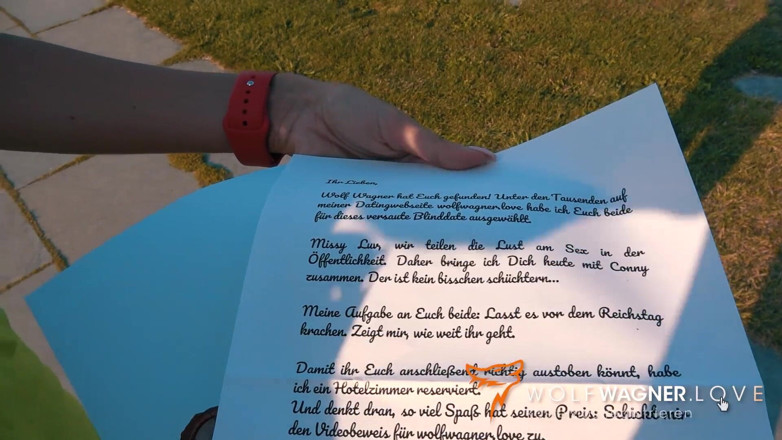 Ihr Lieben,
Wolf Wagner hat Euch gefunden! Unter den Tausenden auf
meiner Datingwebseite wolfwagner.love habe ich Euch beide
für dieses versaute Blinddate ausgewählt.
Missy Luv, wir teilen die Lust am Sex in der
Öffentlichkeit. Daher bringe ich Dich heute mit Conny
zusammen. Der ist kein bisschen schüchtern...
Meine Aufgabe an Euch beide: Lasst es vor dem Reichstag
krachen. Zeigt mir, wie weit ihr geht.
Damit ihr Euch anschließend richtig austoben könnt, habe
ich ein Hotelzimmer reserviert.
Und denkt dran, so viel Spaß hat seinen Preis: Schickt mir
den Videobeweis für wolfwagner.love zu.
WOLFWAGNER.LOVE